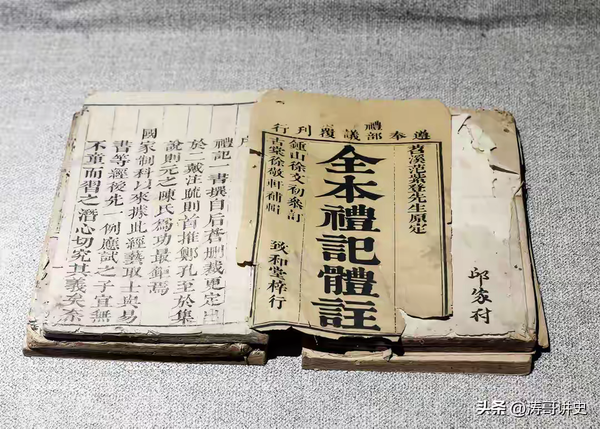 邱家村
遵奉禮部議覆刊行
苕溪范紫登先生原定
全本禮記體註
鍾山徐文初參訂
古棠徐敬軒補輯
致和堂梓行
禮記一書撰自后蒼刪裁更定
於二戴注疏則首推鄭孔至於集
說則元之陳氏為功最鉅焉
國家制科以來據此經藝取士與易
書等經後先一例應試之子宜無
不童而習之潛心切究其義矣余
头条 @涛哥讲史